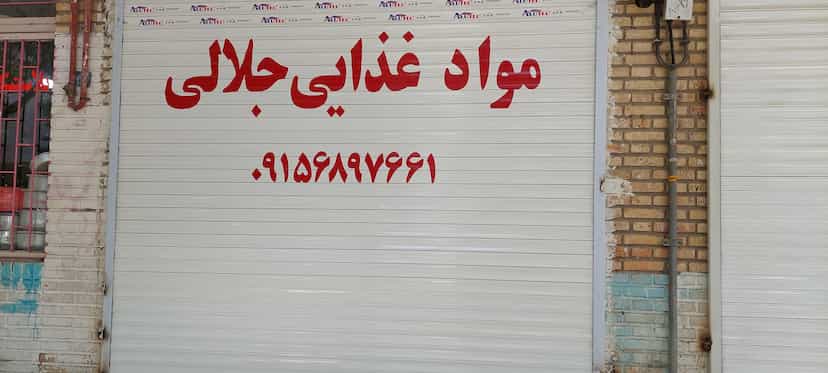 مواد غذایی جلالی
۰۹۱۵۶۸۹۷۶۶۱